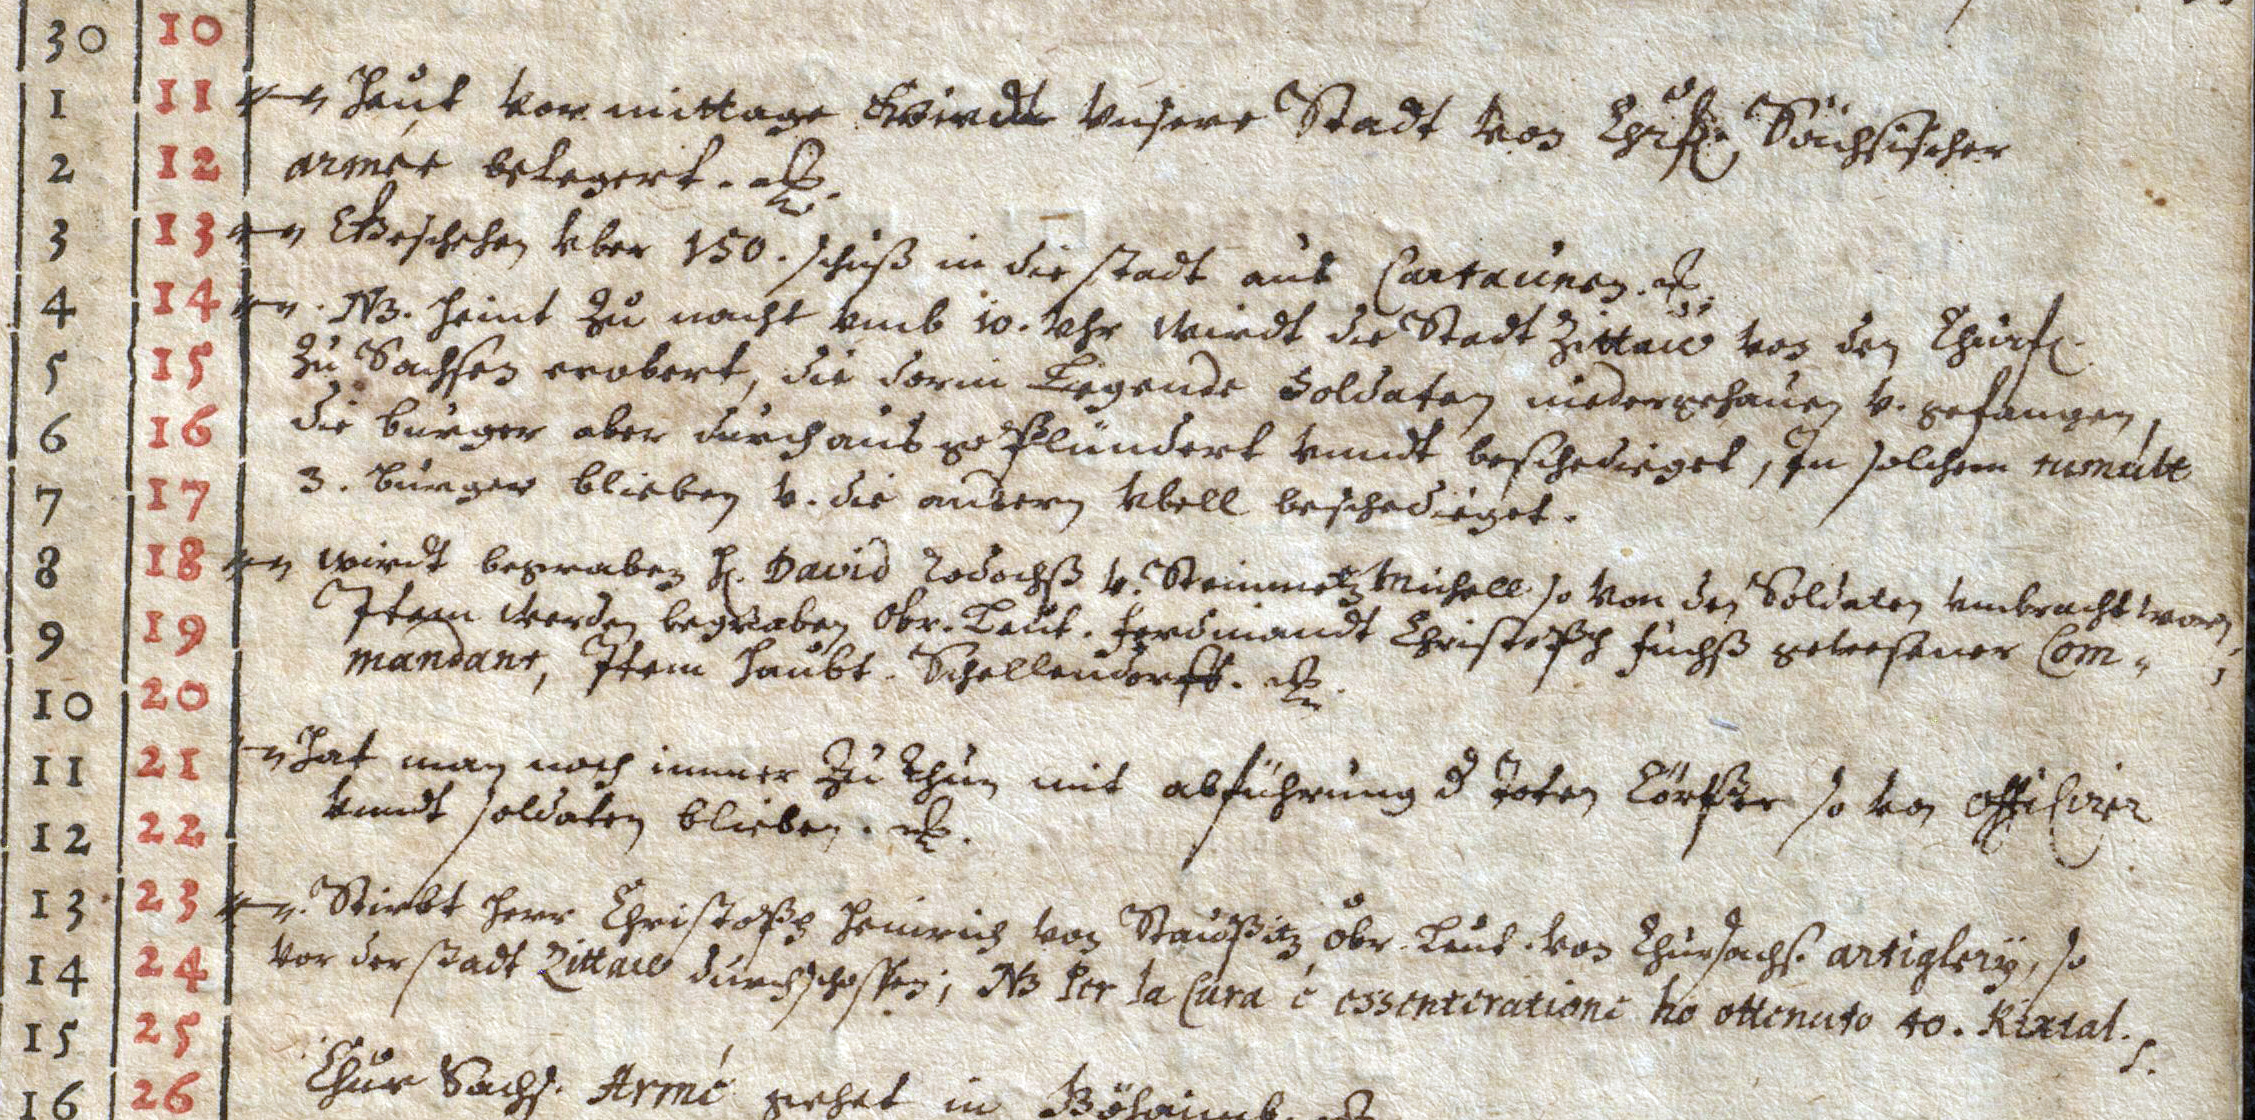 30 10
1 11 Heut vormittage wirdt vnsere Stadt von Chrfl. Sächsischer
2 12 armée belegert. &.
3 13 Geschehen vber 150. schuß in die stadt aus Cartaunen. &.
4 14 NB. heint zu nacht vmb 10. vhr wirdt die Stadt Zittaw von den Churf.
5 15 zu Sachsen erobert, die darin Liegende Soldaten niedergehauen v. gefangen,
6 16 die burger aber durchaus geplündert vnndt beschedieget, In solchem tumult
7 17 3. burger blieben v. die andern vbell beschedieget.
8 18 wirdt begraben H. David v. Steinmetz Michell so von den Soldaten vmbracht worden
9 19 Item werden begraben Obr. Leut. Ferdinandt Christoph Fuchß gewesener Com-
mandant, Item Haubt. Schellendorff. &.
10 20
11 21 Hat man noch immer zu thun mit abführung d Toten Cörper so von officirer
12 22 vnndt soldaten blieben. &.
13 23 Stirbt Herr Christoph Heinrich von Obr. Leut. von Chursachs. artiglery, so
14 24 vor der stadt Zittaw durchschossen; NB Per la Cura è essenteratione ho ottenuto 40. Rixtal.
15 25
Chur Sachs. Armé gehet in Böhaimb. &
16 26